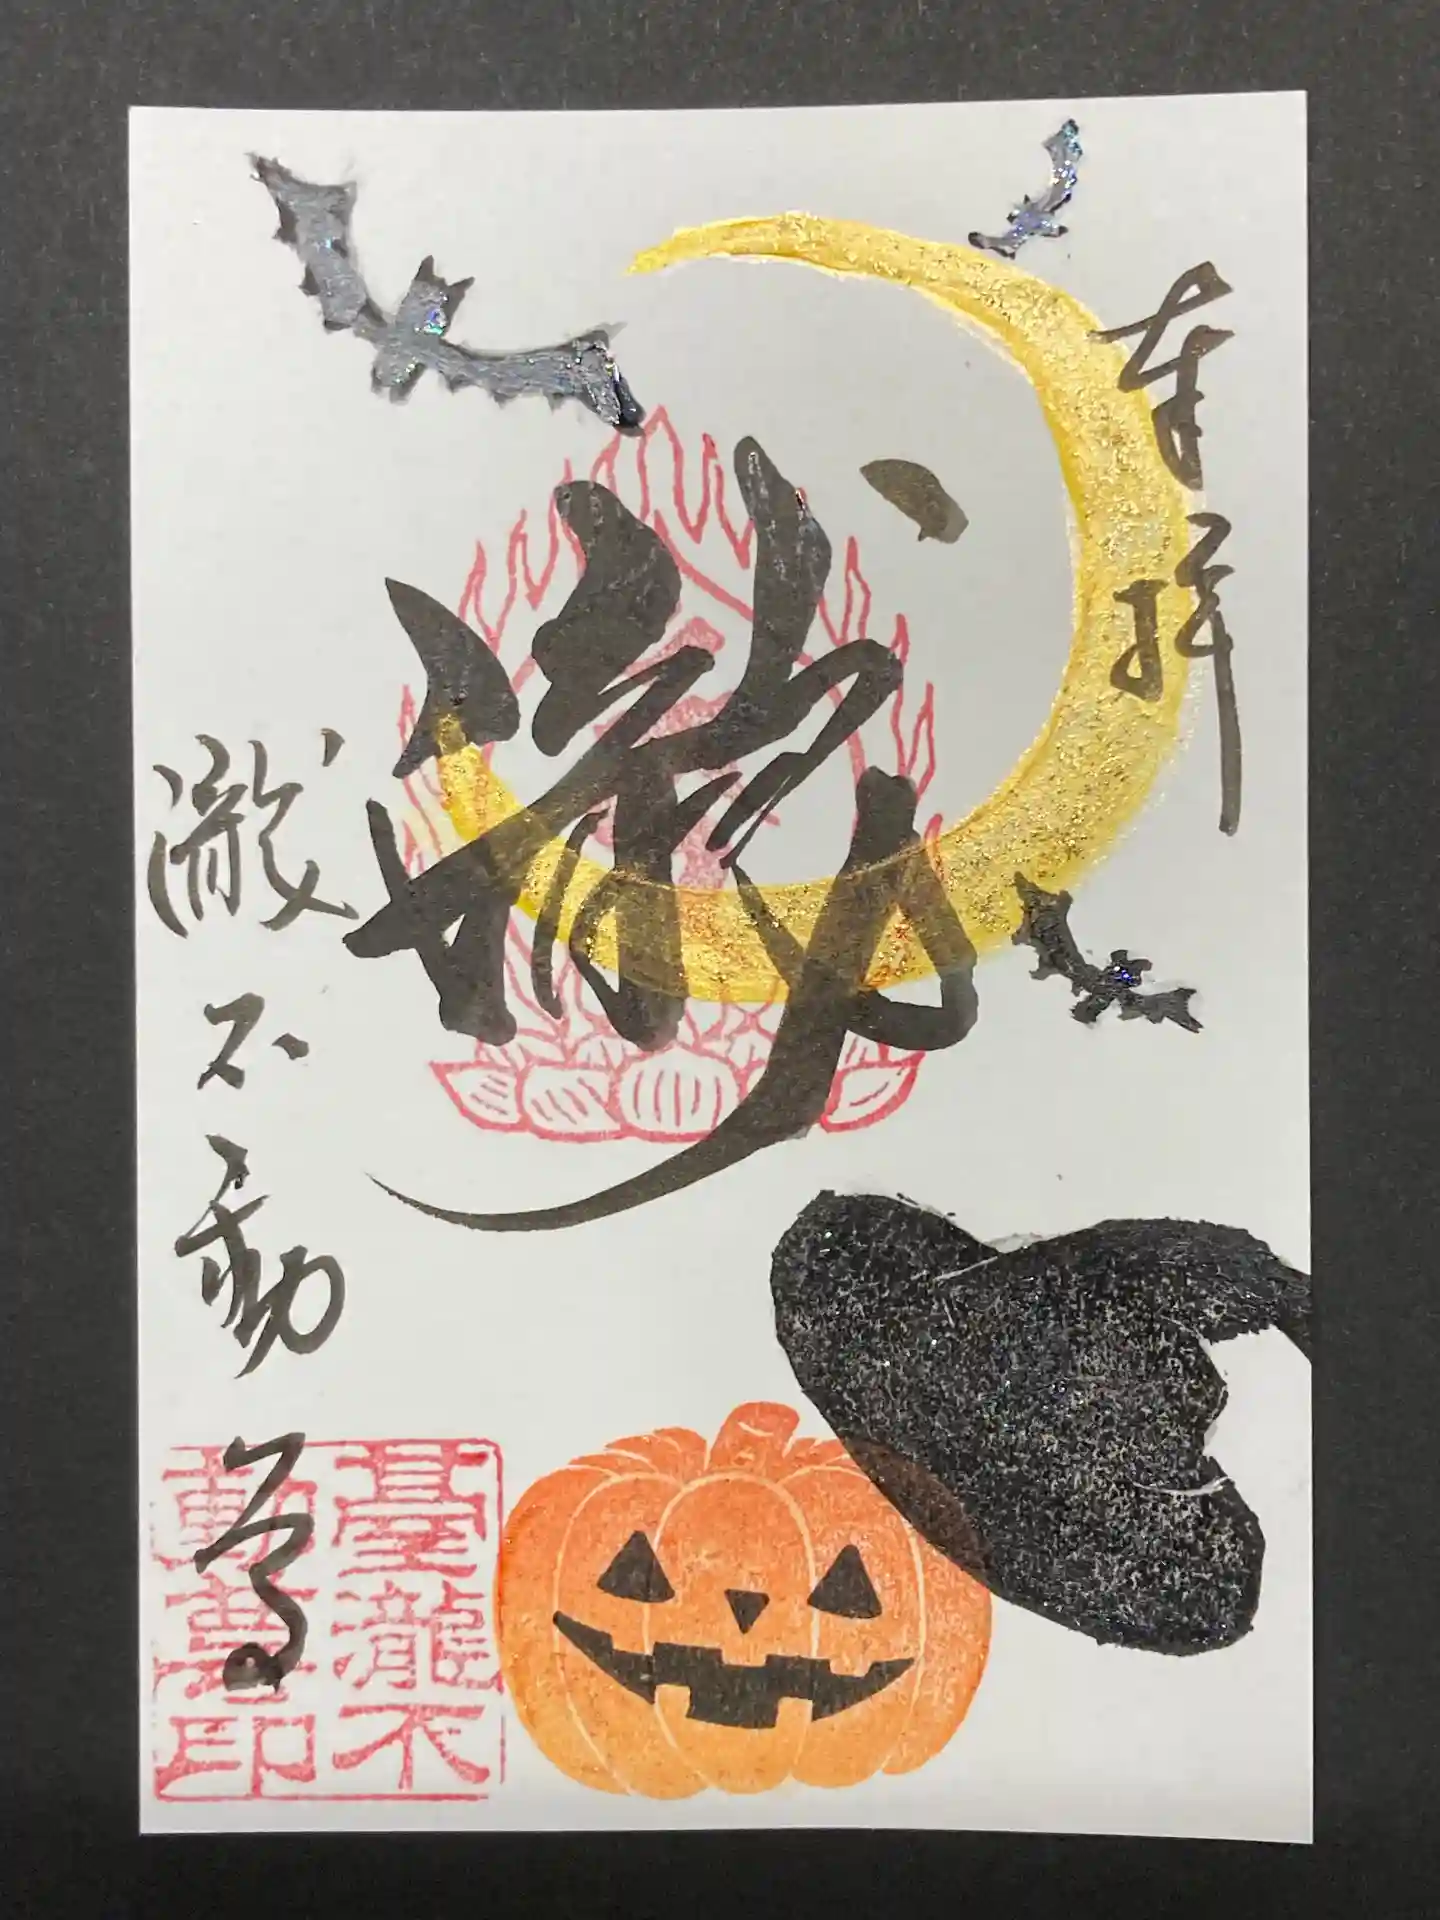 奉拝
瀧
瀧不動尊
臺瀧不
動尊印